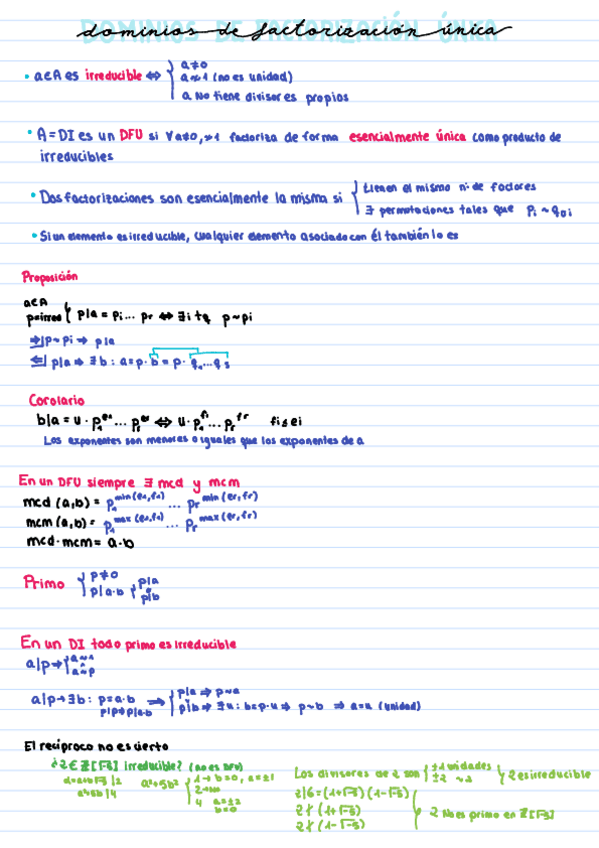 dominios de factorización única
• a∈A es irreducible ⇔ { a≠0
a≁1 (no es unidad)
a No tiene divisores propios
• A = DI es un DFU si ∀a≠0,≁1 factoriza de forma esencialmente única como producto de
irreducibles
• Dos factorizaciones son esencialmente la misma si { tienen el mismo nº de factores
∃ permutaciones tales que pi ~ qσi
• Si un elemento es irreducible, cualquier elemento asociado con él también lo es
Proposición
a∈A
p=irred { p|a = p1... pr ⇔ ∃i tq p~pi
⇒| p~pi ⇒ p|a
⇐| p|a ⇒ ∃b : a=p·b = p· q1...qs
Corolario
b|a = u·p1^e1 ... pr^er ⇔ u·p1^f1 ... pr^fr fi≤ei
Los exponentes son menores o iguales que los exponentes de a
En un DFU siempre ∃ mcd y mcm
mcd (a,b) = p1^min(e1,f1) ... pr^min(er,fr)
mcm (a,b) = p1^max(e1,f1) ... pr^max(er,fr)
mcd·mcm = a·b
Primo { p≠0
p|a·b { p|a
ó
p|b
En un DI todo primo es irreducible
a|p → { a~1
ó
a~p
a|p → ∃b : p=a·b → { p|a ⇒ p~a
p|p⇒p|a·b
p|b ⇒ ∃u : b=p·u ⇒ p~b ⇒ a=u (unidad)
El recíproco no es cierto
¿2∈Z[√-5] irreducible? (no es DFU)
d=a+b√-5 |2
a²+5b² |4
a²+5b² { 1→ b=0, a=±1
2→No
4 a=±2
b=0
Los divisores de 2 son { ±1 unidades
±2 ~2 } 2 es irreducible
2|6=(1+√-5)(1-√-5)
2∤(1+√-5)
2∤(1-√-5)
} 2 No es primo en Z[√-5]